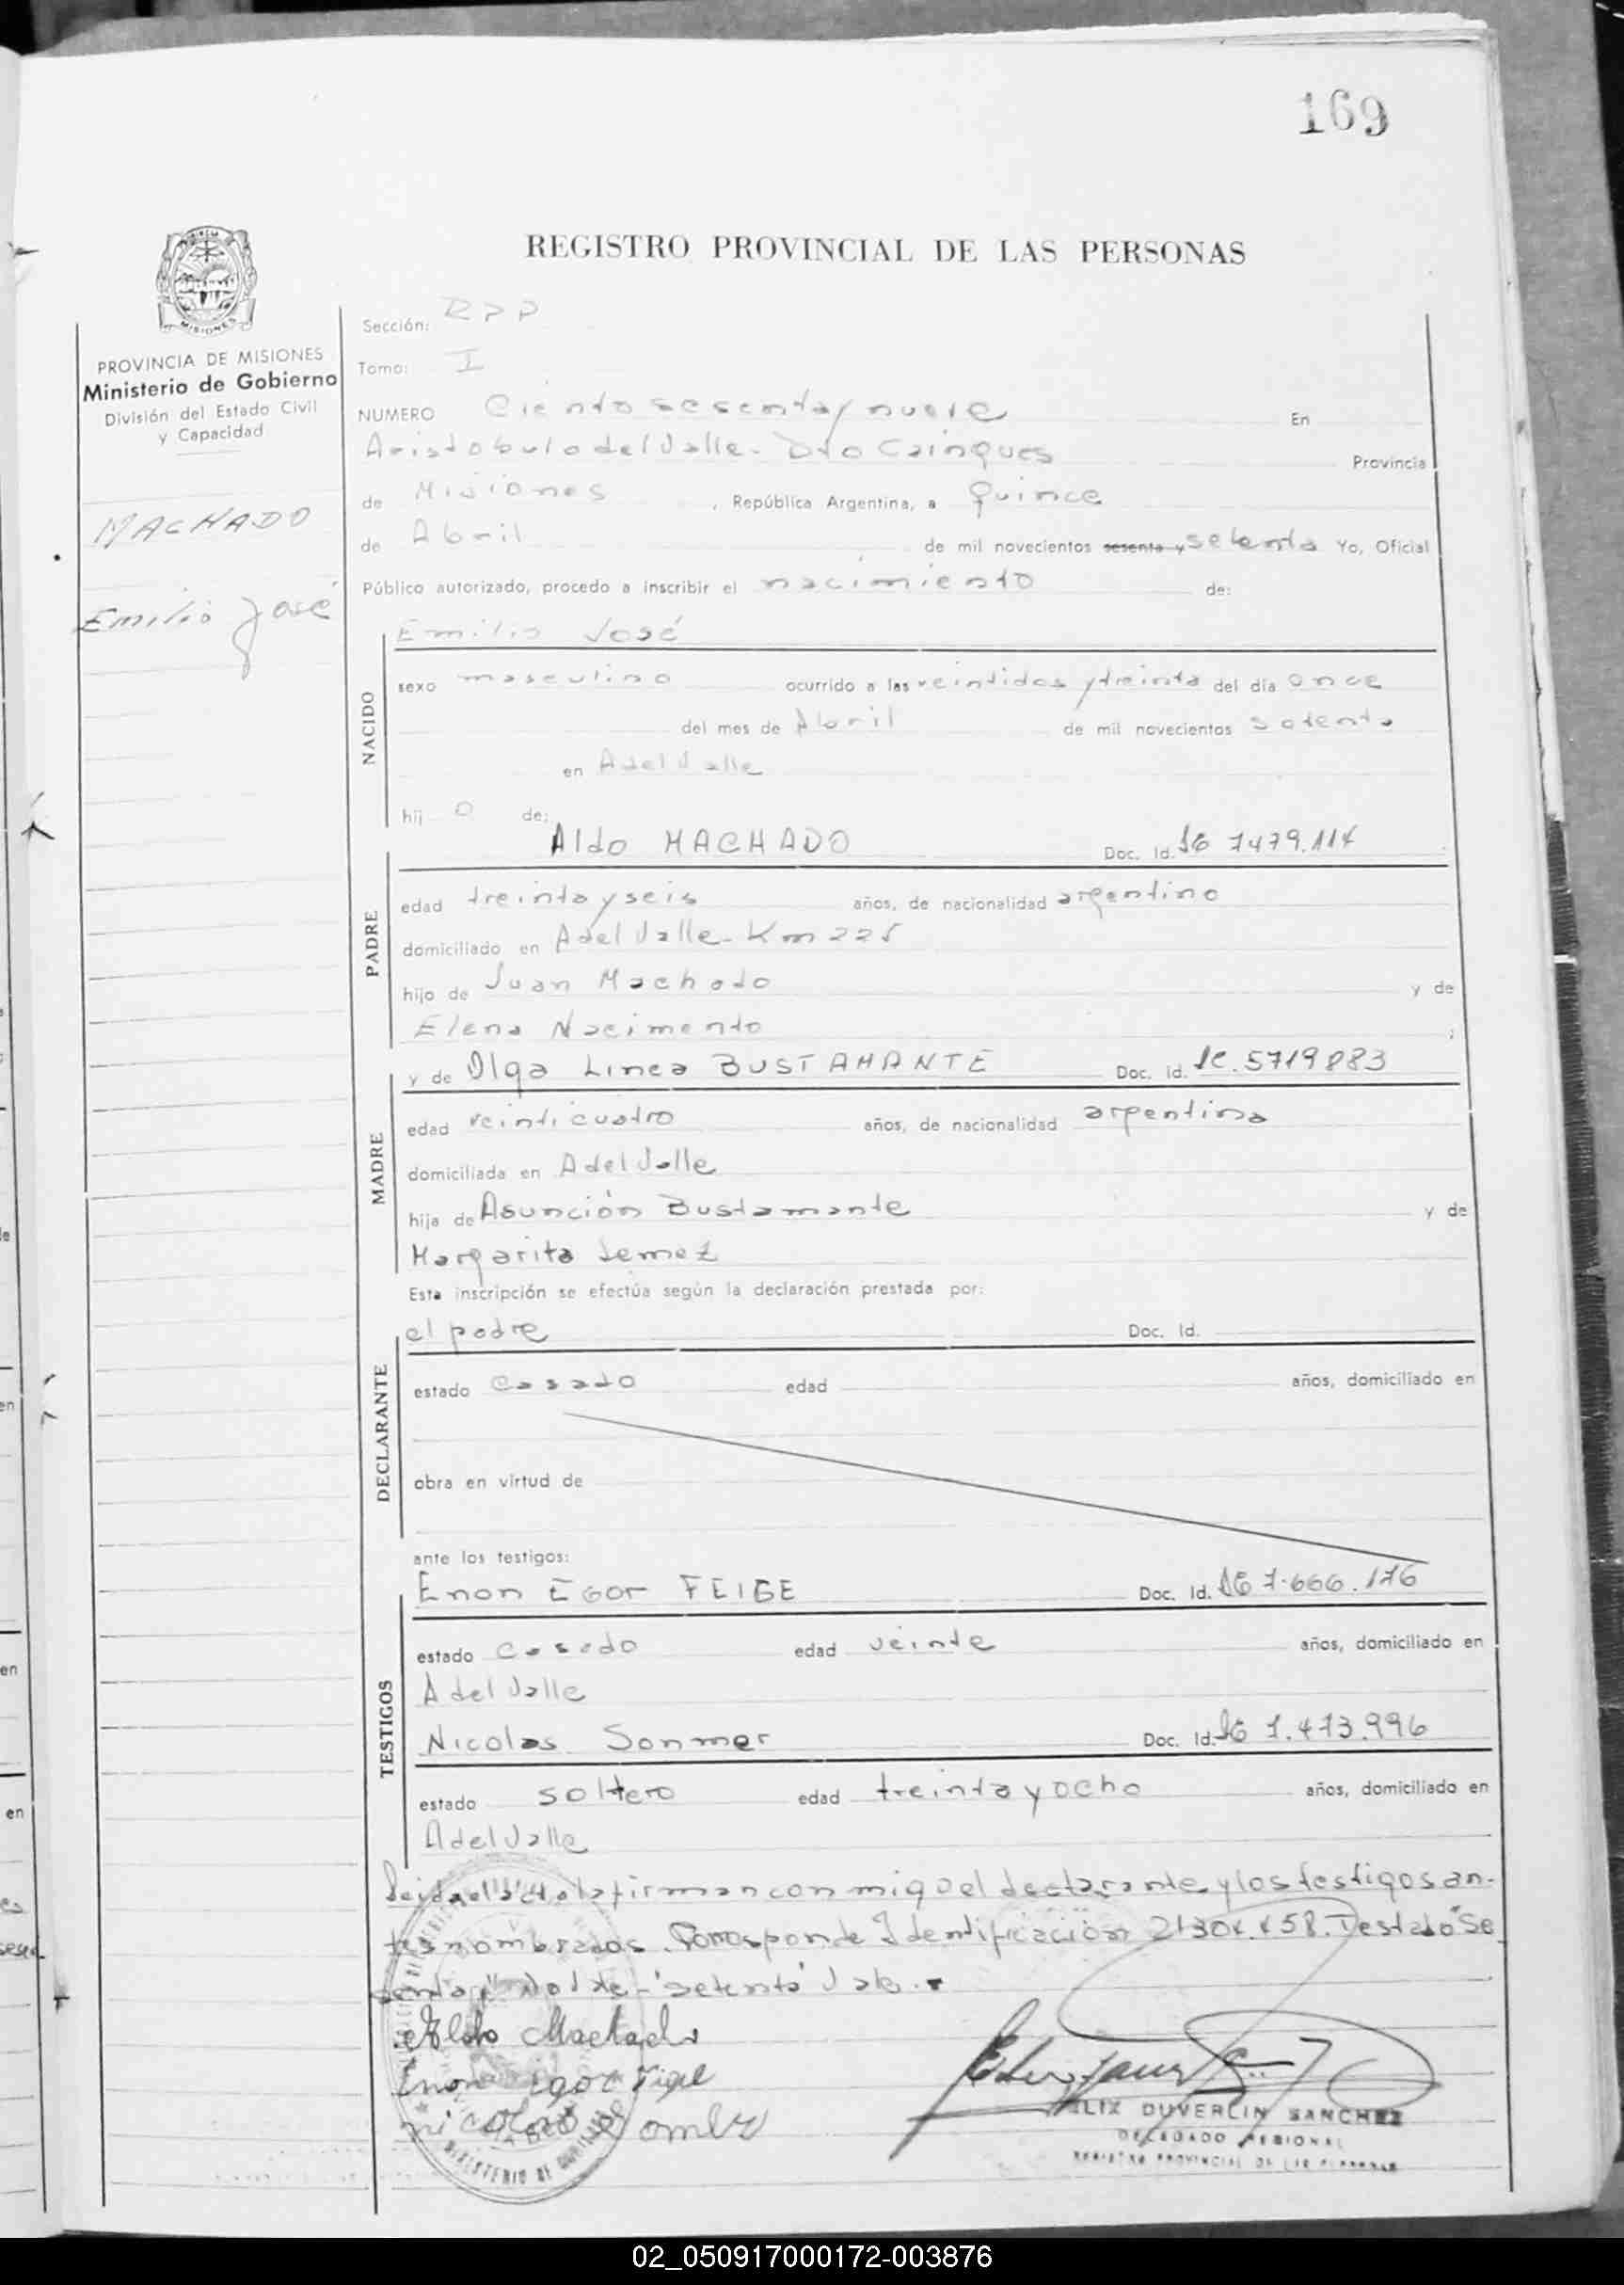 169
REGISTRO PROVINCIAL DE LAS PERSONAS
MISIONES
PROVINCIA DE MISIONES
Ministerio de Gobierno
División del Estado Civil
y Capacidad
MACHADO
Emilio José
Sección: RPP
Tomo: I
NUMERO Ciento sesenta y nueve En
Aristobulo del Valle - Dto Cainques Provincia
de Misiones, República Argentina, a quince
de Abril de mil novecientos sesenta y setenta Yo, Oficial
Público autorizado, procedo a inscribir el nacimiento de:
NACIDO
Emilio José
sexo masculino ocurrido a las veintidos y treinta del día once
del mes de Abril de mil novecientos setenta
en A del Valle
hij o de:
PADRE
Aldo MACHADO Doc. Id. 7479.114
edad treinta y seis años, de nacionalidad argentino
domiciliado en A del Valle - Km 225
hijo de Juan Machado y de
Elena Nacimento ;
MADRE
y de Olga Linea BUSTAMANTE Doc. Id. 5719883
edad veinticuatro años, de nacionalidad argentina
domiciliada en A del Valle
hija de Asunción Bustamante y de
Margarita
Esta inscripción se efectúa según la declaración prestada por:
DECLARANTE
el padre Doc. Id.
estado casado edad años, domiciliado en
obra en virtud de
ante los testigos:
TESTIGOS
Enon Egor FEIGE Doc. Id. 7.666.176
estado casado edad veinte años, domiciliado en
A del Valle
Nicolas Sonmer Doc. Id. 7.473.996
estado soltero edad treinta y ocho años, domiciliado en
A del Valle
Leida el acta la firman conmigo el declarante y los testigos an-
tes nombrados. Corresponde Identificación 21304.458. Testado "Se
senta y" No Vale - "setenta" Vale.
Aldo Machado
Enon Egor Feige
FELIX DUVERLIN SANCHEZ
DELEGADO REGIONAL
REGISTRO PROVINCIAL DE LAS PERSONAS
02_050917000172-003876